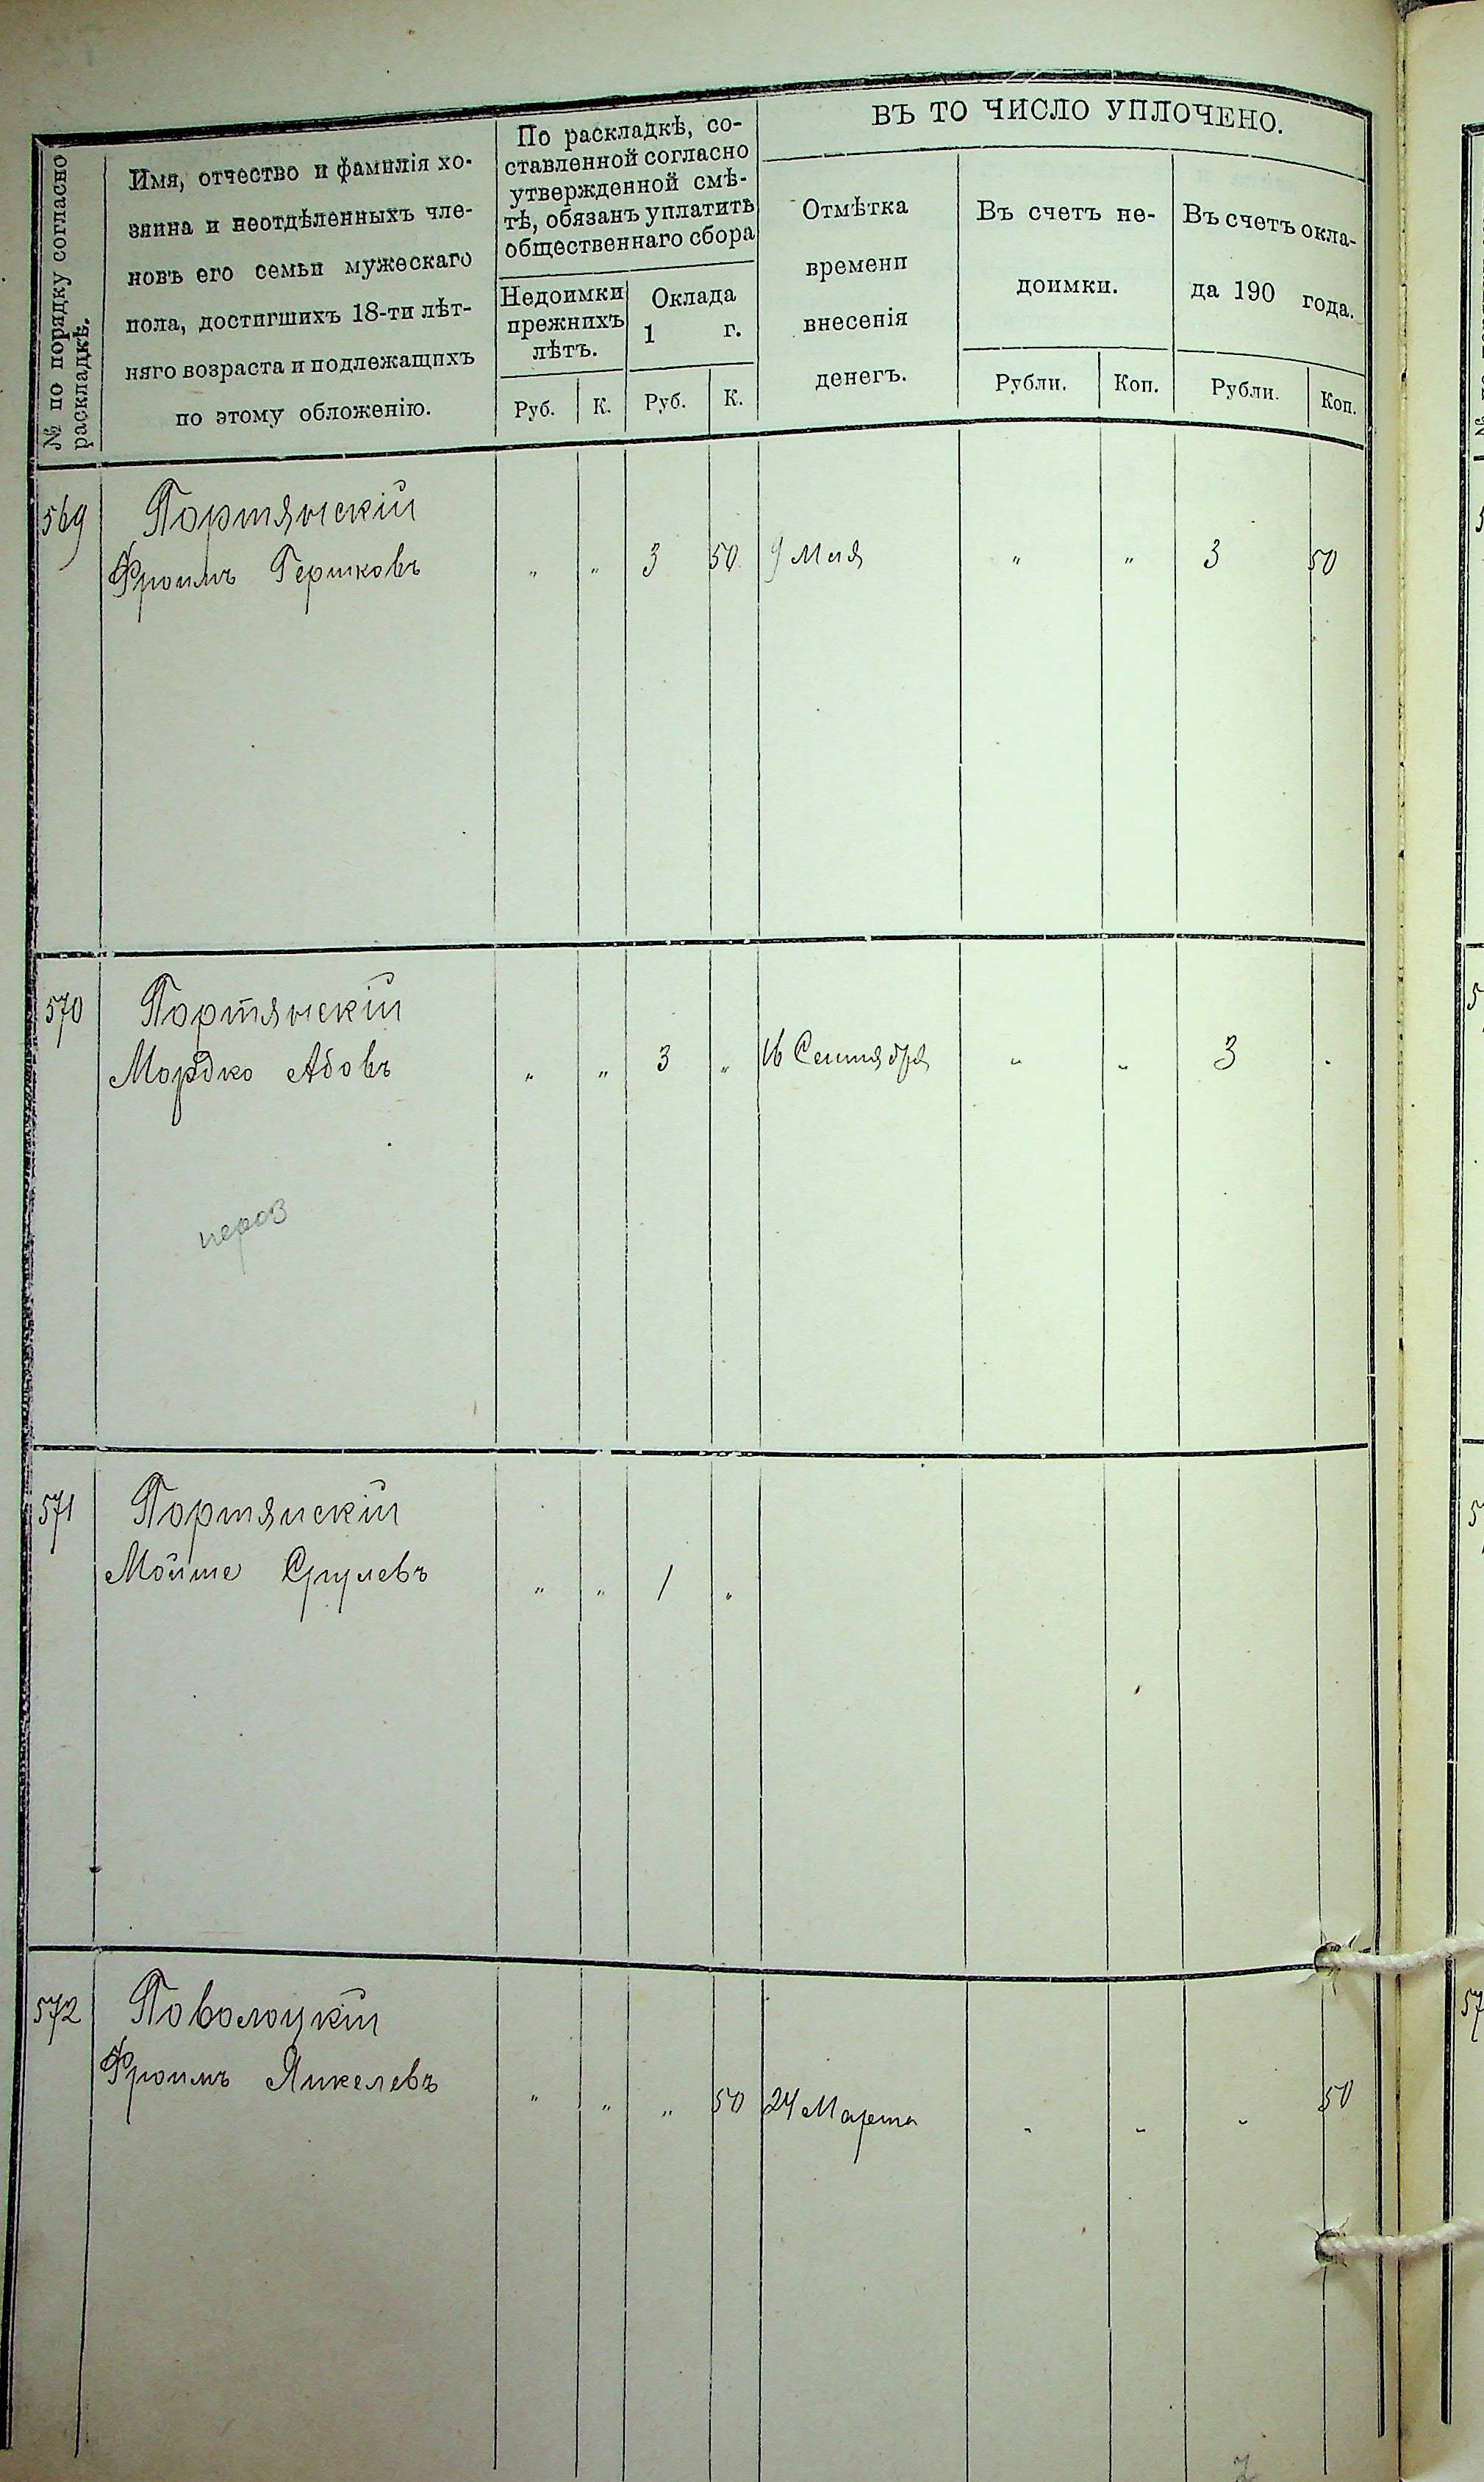 № по порядку согласно раскладкѣ.
Имя, отчество и фамилія хо-
зяина и неотдѣленныхъ чле-
новъ его семьи мужескаго
пола, достигшихъ 18-ти лѣт-
няго возраста и подлежащихъ
по этому обложенію.
По раскладкѣ, со-
ставленной согласно
утвержденной смѣ-
тѣ, обязанъ уплатить
общественнаго сбора
Недоимки
прежнихъ
лѣтъ.
Руб. К.
Оклада
1 г.
Руб. К.
ВЪ ТО ЧИСЛО УПЛОЧЕНО.
Отмѣтка
времени
внесенія
денегъ.
Въ счетъ не-
доимки.
Рубли. Коп.
Въ счетъ окла-
да 190 года.
Рубли. Коп.
569 Портянскій
Фроимъ Гершковъ " " 3 50 9 Мая " " 3 50
570 Портянскій
Мордко Абовъ " " 3 " 16 Сентября " " 3 "
571 Портянскій
Мойше Срулевъ " " 1 "
572 Поволоцкій
Фроимъ Янкелевъ " " " 50 24 Марта " " " 50